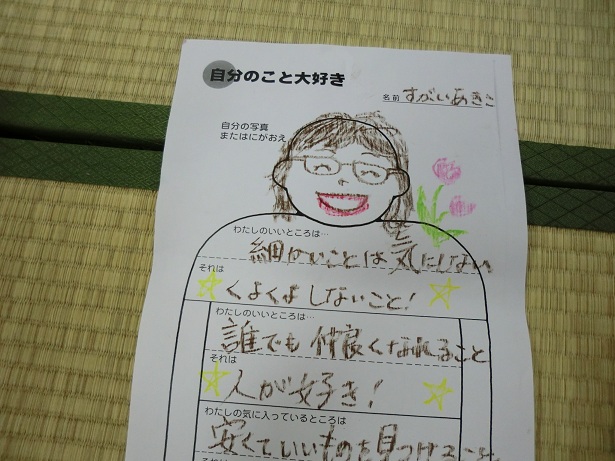 自分のこと大好き
名前 すがいあきこ
自分の写真
またはにがおえ
わたしのいいところは…
細かいことは気にしない
それは
くよくよしないこと!
わたしのいいところは…
誰でも仲良くなれること
それは
人が好き!
わたしの気に入っているところは
安くていいものを見つけること